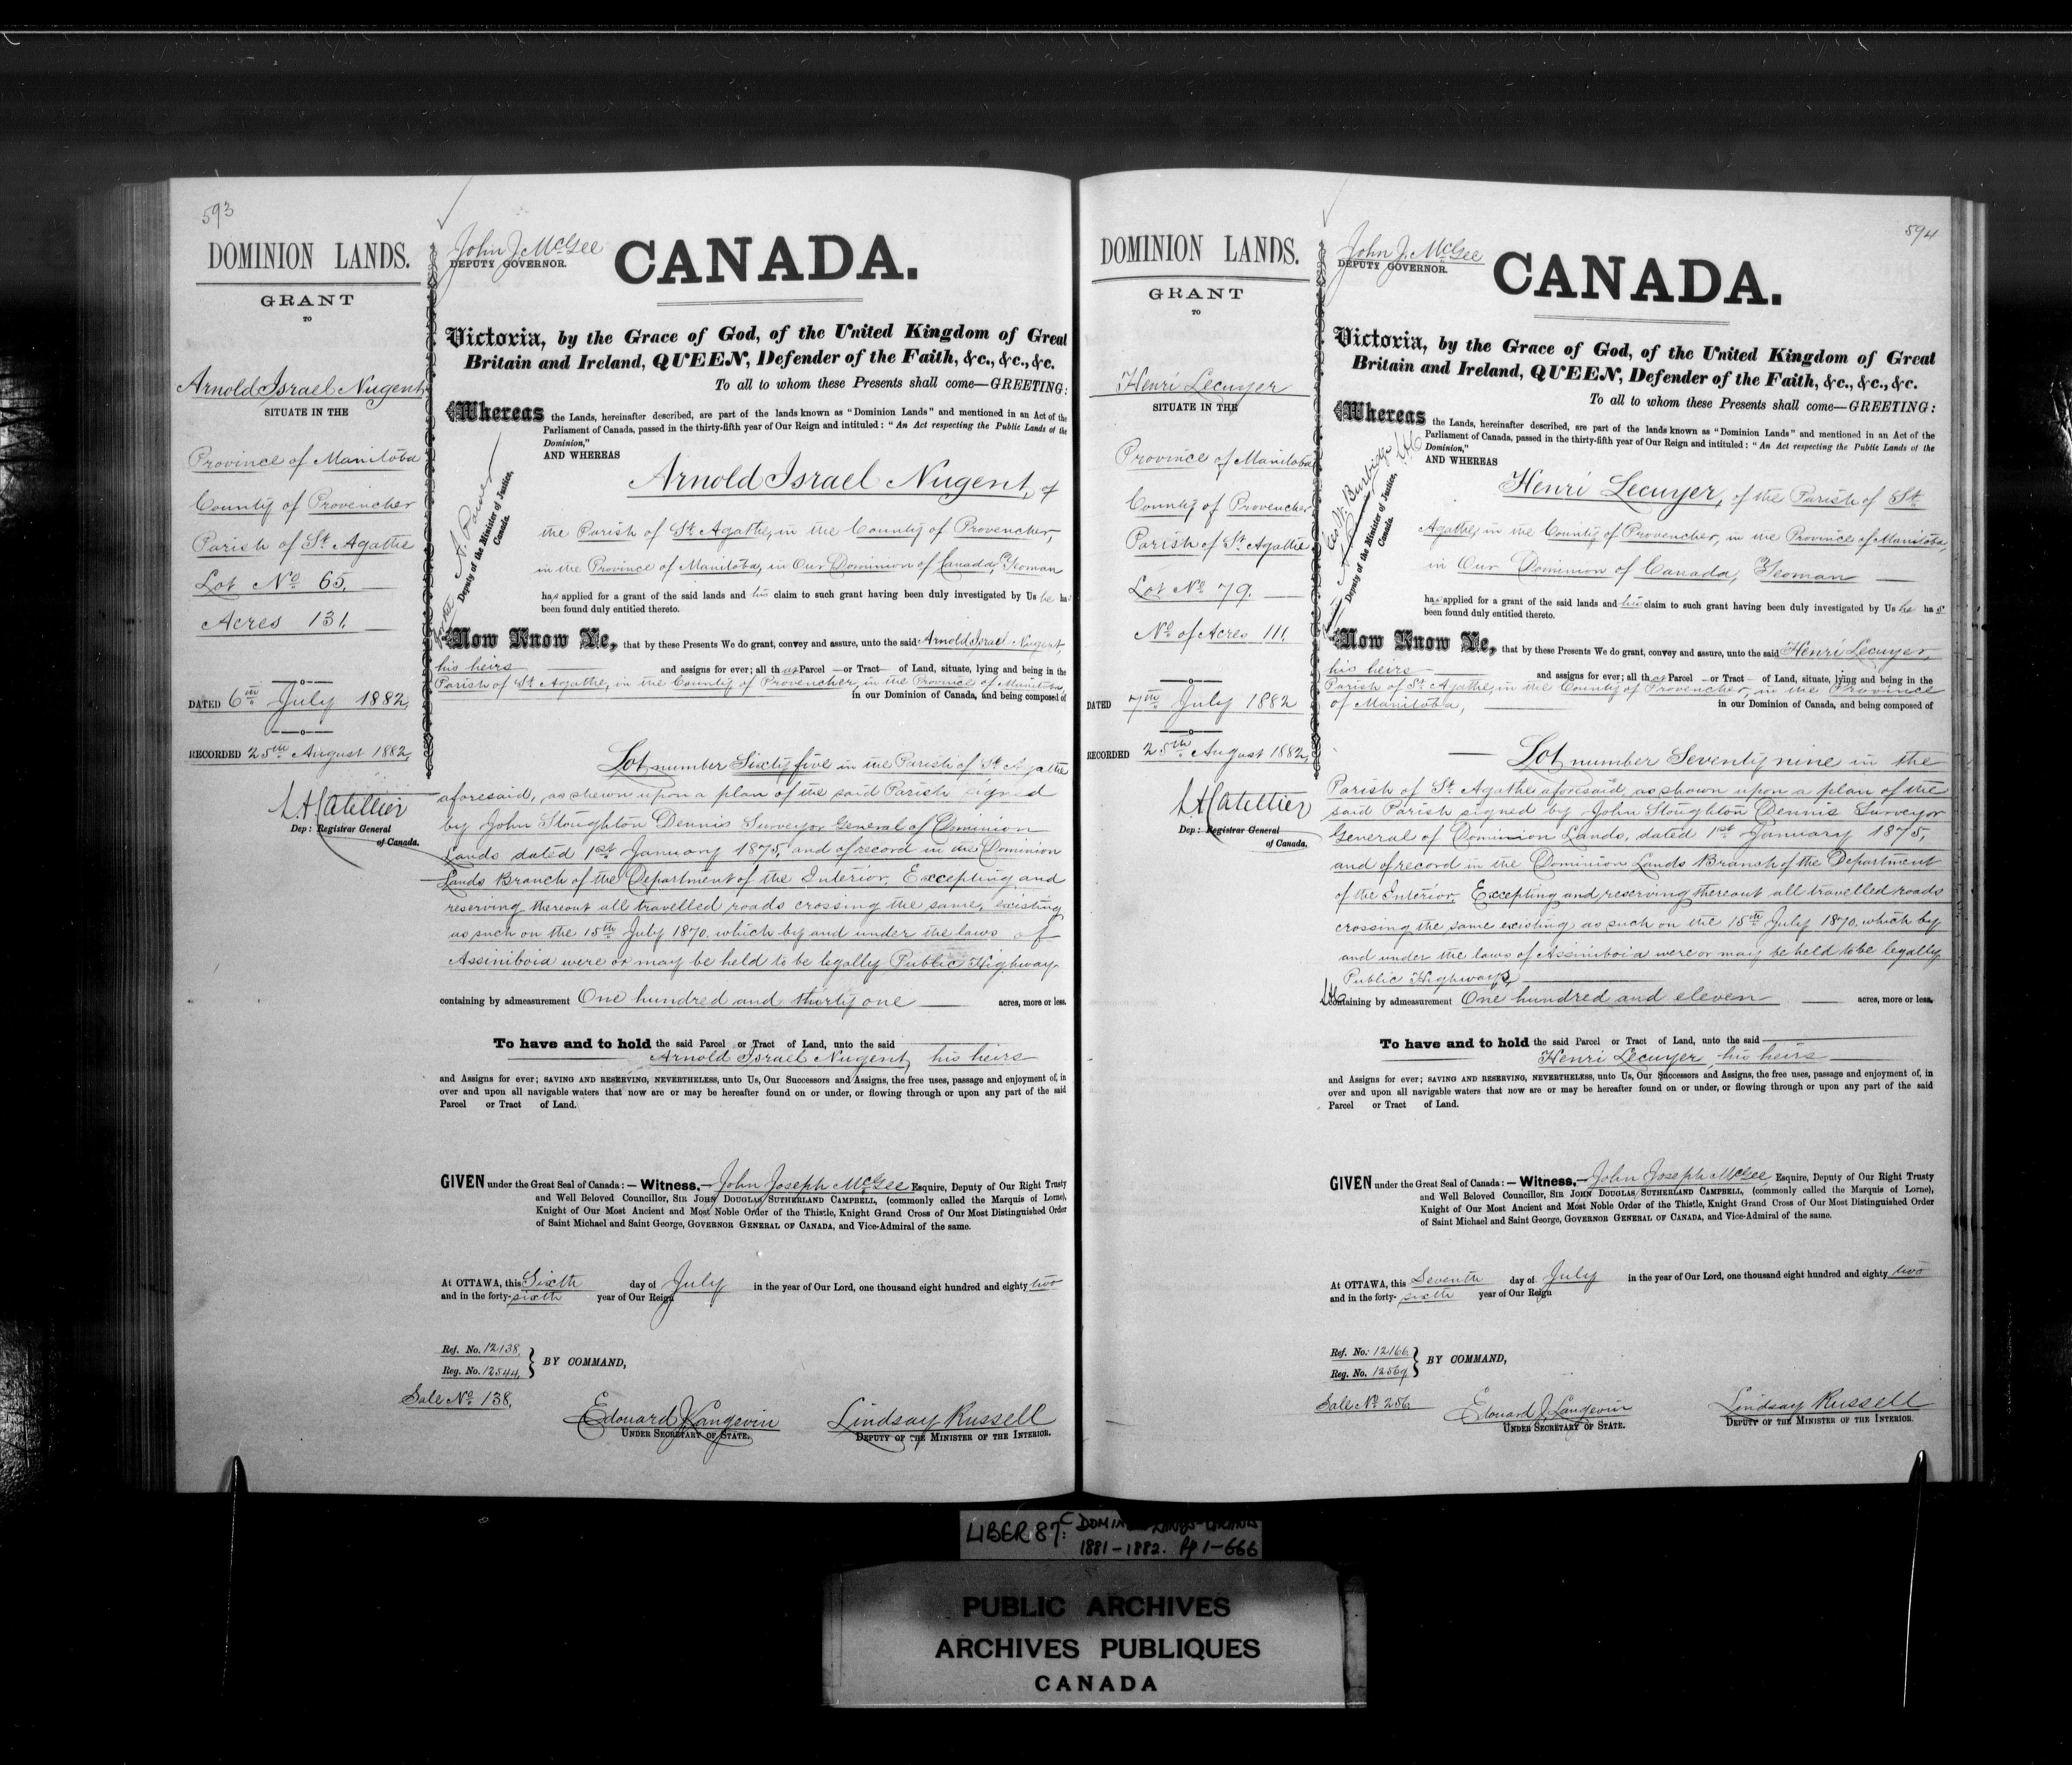 593
DOMINION LANDS.
GRANT
TO
Arnold Israel Nugent
SITUATE IN THE
Province of Manitoba
County of Provencher
Parish of St Agathe
Lot No 65.
Acres 131.
DATED 6th July 1882,
RECORDED 25th August 1882,
L.A. Catellier
Dep: Registrar General
of Canada.
John J. McGee
DEPUTY GOVERNOR.
CANADA.
Victoria, by the Grace of God, of the United Kingdom of Great
Britain and Ireland, QUEEN, Defender of the Faith, &c., &c., &c.
To all to whom these Presents shall come—GREETING:
Whereas the Lands, hereinafter described, are part of the lands known as "Dominion Lands" and mentioned in an Act of the
Parliament of Canada, passed in the thirty-fifth year of Our Reign and intituled: "An Act respecting the Public Lands of the
Dominion,"
AND WHEREAS
A. Power
Deputy of the Minister of Justice,
Canada.
Arnold Israel Nugent, of
the Parish of St Agathe, in the County of Provencher,
in the Province of Manitoba, in Our Dominion of Canada, Yeoman
has applied for a grant of the said lands and his claim to such grant having been duly investigated by Us he ha
been found duly entitled thereto.
Now Know Ye, that by these Presents We do grant, convey and assure, unto the said Arnold Israel Nugent,
his heirs and assigns for ever; all that Parcel or Tract of Land, situate, lying and being in the
Parish of St Agathe, in the County of Provencher, in the Province of Manitoba,
in our Dominion of Canada, and being composed of
Lot number Sixty five in the Parish of St Agathe
aforesaid, as shewn upon a plan of the said Parish signed
by John Stoughton Dennis Surveyor General of Dominion
Lands dated 1st January 1875, and of record in the Dominion
Lands Branch of the Department of the Interior, Excepting and
reserving thereout all travelled roads crossing the same, existing
as such on the 15th July 1870, which by and under the laws of
Assiniboia were or may be held to be legally Public Highway
containing by admeasurement One hundred and thirty one acres, more or less.
To have and to hold the said Parcel or Tract of Land, unto the said
Arnold Israel Nugent, his heirs
and Assigns for ever; SAVING AND RESERVING, NEVERTHELESS, unto Us, Our Successors and Assigns, the free uses, passage and enjoyment of, in
over and upon all navigable waters that now are or may be hereafter found on or under, or flowing through or upon any part of the said
Parcel or Tract of Land.
GIVEN under the Great Seal of Canada:—Witness,—John Joseph McGee Esquire, Deputy of Our Right Trusty
and Well Beloved Councillor, SIR JOHN DOUGLAS SUTHERLAND CAMPBELL, (commonly called the Marquis of Lorne),
Knight of Our Most Ancient and Most Noble Order of the Thistle, Knight Grand Cross of Our Most Distinguished Order
of Saint Michael and Saint George, GOVERNOR GENERAL OF CANADA, and Vice-Admiral of the same.
At OTTAWA, this Sixth day of July in the year of Our Lord, one thousand eight hundred and eighty two
and in the forty-sixth year of Our Reign
Ref. No. 12138.
Reg. No. 12544.
BY COMMAND,
Sale No 138.
Edouard J. Langevin
UNDER SECRETARY OF STATE.
Lindsay Russell
DEPUTY OF THE MINISTER OF THE INTERIOR.
594
DOMINION LANDS.
GRANT
TO
Henri Lecuyer
SITUATE IN THE
Province of Manitoba
County of Provencher
Parish of St Agathe
Lot No 79.
No of Acres 111.
DATED 7th July 1882
RECORDED 25th August 1882,
L.A. Catellier
Dep: Registrar General
of Canada.
John J. McGee
DEPUTY GOVERNOR.
CANADA.
Victoria, by the Grace of God, of the United Kingdom of Great
Britain and Ireland, QUEEN, Defender of the Faith, &c., &c., &c.
To all to whom these Presents shall come—GREETING:
Whereas the Lands, hereinafter described, are part of the lands known as "Dominion Lands" and mentioned in an Act of the
Parliament of Canada, passed in the thirty-fifth year of Our Reign and intituled: "An Act respecting the Public Lands of the
Dominion,"
AND WHEREAS
Geo. W. Burbidge
Deputy of the Minister of Justice,
Canada.
Henri Lecuyer, of the Parish of St
Agathe, in the County of Provencher, in the Province of Manitoba,
in Our Dominion of Canada, Yeoman
has applied for a grant of the said lands and his claim to such grant having been duly investigated by Us he has
been found duly entitled thereto.
Now Know Ye, that by these Presents We do grant, convey and assure, unto the said Henri Lecuyer,
his heirs and assigns for ever; all that Parcel or Tract of Land, situate, lying and being in the
Parish of St Agathe, in the County of Provencher, in the Province
of Manitoba, in our Dominion of Canada, and being composed of
Lot number Seventy nine in the
Parish of St Agathe aforesaid, as shown upon a plan of the
said Parish signed by John Stoughton Dennis Surveyor
General of Dominion Lands, dated 1st January 1875,
and of record in the Dominion Lands Branch of the Department
of the Interior. Excepting and reserving thereout all travelled roads
crossing the same existing as such on the 15th July 1870, which by
and under the laws of Assiniboia were or may be held to be legally
Public Highways,
containing by admeasurement One hundred and eleven acres, more or less.
To have and to hold the said Parcel or Tract of Land, unto the said
Henri Lecuyer, his heirs
and Assigns for ever; SAVING AND RESERVING, NEVERTHELESS, unto Us, Our Successors and Assigns, the free uses, passage and enjoyment of, in
over and upon all navigable waters that now are or may be hereafter found on or under, or flowing through or upon any part of the said
Parcel or Tract of Land.
GIVEN under the Great Seal of Canada:—Witness,—John Joseph McGee Esquire, Deputy of Our Right Trusty
and Well Beloved Councillor, SIR JOHN DOUGLAS SUTHERLAND CAMPBELL, (commonly called the Marquis of Lorne),
Knight of Our Most Ancient and Most Noble Order of the Thistle, Knight Grand Cross of Our Most Distinguished Order
of Saint Michael and Saint George, GOVERNOR GENERAL OF CANADA, and Vice-Admiral of the same.
At OTTAWA, this Seventh day of July in the year of Our Lord, one thousand eight hundred and eighty two
and in the forty-sixth year of Our Reign
Ref. No: 12166.
Reg. No. 12569
BY COMMAND,
Sale No 256
Edouard J. Langevin
UNDER SECRETARY OF STATE.
Lindsay Russell
DEPUTY OF THE MINISTER OF THE INTERIOR.
LIBER 87:
1881-1882. Pp 1-666
PUBLIC ARCHIVES
ARCHIVES PUBLIQUES
CANADA